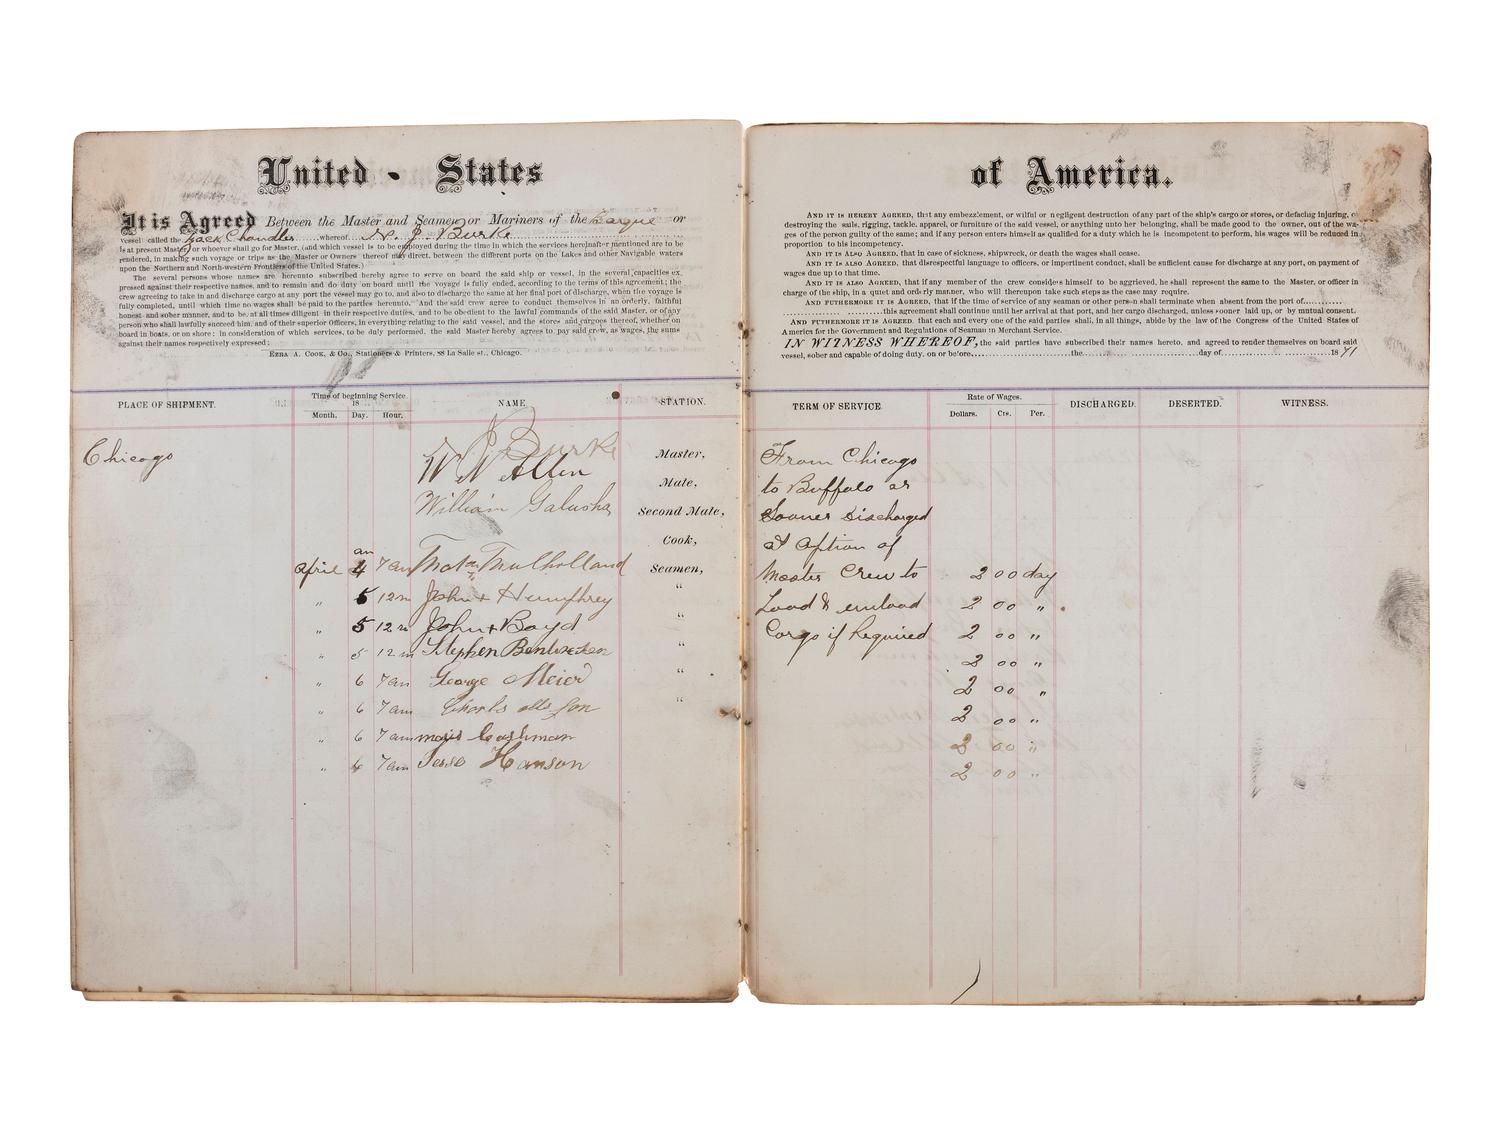 United - States
It is Agreed Between the Master and Seamen, or Mariners of the Barque or
vessel called the Zack Chandler whereof J. Burke
is at present Master, or whoever shall go for Master, (and which vessel is to be employed during the time in which the services hereinafter mentioned are to be
rendered, in making such voyage or trips as the Master or Owners thereof may direct, between the different ports on the Lakes and other Navigable waters
upon the Northern and North-western Frontiers of the United States.)
The several persons whose names are hereunto subscribed hereby agree to serve on board the said ship or vessel, in the several capacities ex-
pressed against their respective names, and to remain and do duty on board until the voyage is fully ended, according to the terms of this agreement; the
crew agreeing to take in and discharge cargo at any port the vessel may go to, and also to discharge the same at her final port of discharge, when the voyage is
fully completed, until which time no wages shall be paid to the parties hereunto. And the said crew agree to conduct themselves in an orderly, faithful
honest and sober manner, and to be, at all times diligent in their respective duties, and to be obedient to the lawful commands of the said Master, or of any
person who shall lawfully succeed him, and of their superior Officers, in everything relating to the said vessel, and the stores and cargoes thereof, whether on
board in boats, or on shore: in consideration of which services, to be duly performed, the said Master hereby agrees to pay said crew, as wages, the sums
against their names respectively expressed;
EZRA A. COOK, & CO., Stationers & Printers, 88 La Salle st., Chicago.
PLACE OF SHIPMENT.
Time of beginning Service.
18
Month. Day. Hour.
NAME.
STATION.
Chicago
J Burke Master,
W N Allen Mate,
William Galusha Second Mate,
Cook,
April 4 7 am Mulholland Seamen,
" 5 12 m John Humphrey "
" 5 12 m John Boyd "
" 5 12 m Stephen "
" 6 7 am George Meier "
" 6 7 am "
" 6 7 am Cashman
" 7 am Hanson
of America.
AND IT IS HEREBY AGREED, that any embezz'ement, or wilful or negligent destruction of any part of the ship's cargo or stores, or defacing injuring, or
destroying the sails, rigging, tackle, apparel, or furniture of the said vessel, or anything unto her belonging, shall be made good to the owner, out of the wa-
ges of the person guilty of the same; and if any person enters himself as qualified for a duty which he is incompetent to perform, his wages will be reduced in
proportion to his incompetency.
AND IT IS ALSO AGREED, that in case of sickness, shipwreck, or death the wages shall cease.
AND IT IS ALSO AGREED, that disrespectful language to officers, or impertinent conduct, shall be sufficient cause for discharge at any port, on payment of
wages due up to that time.
AND IT IS ALSO AGREED, that if any member of the crew considers himself to be aggrieved, he shall represent the same to the Master, or officer in
charge of the ship, in a quiet and orderly manner, who will thereupon take such steps as the case may require.
AND FUTHERMORE IT IS AGREED, that if the time of service of any seaman or other person shall terminate when absent from the port of
this agreement shall continue until her arrival at that port, and her cargo discharged, unless sooner laid up, or by mutual consent.
AND FUTHERMORE IT IS AGREED, that each and every one of the said parties shall, in all things, abide by the law of the Congress of the United States of
America for the Government and Regulations of Seaman in Merchant Service.
IN WITNESS WHEREOF, the said parties have subscribed their names hereto, and agreed to render themselves on board said
vessel, sober and capable of doing duty, on or before the day of 1871
TERM OF SERVICE.
Rate of Wages.
Dollars. Cts. Per.
DISCHARGED. DESERTED. WITNESS.
From Chicago
to Buffalo or
Sooner Discharged
at Option of
Master Crew to 2 00 day
Load & unload 2 00 "
Cargo if Required 2 00 "
2 00 "
2 00 "
2 00 "
2 00 "
2 00 "